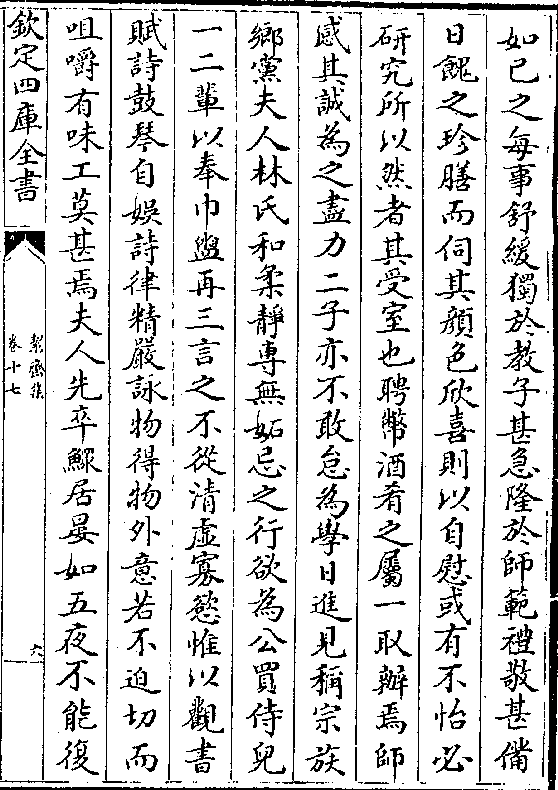 如己之每事舒緩獨於教子甚急隆於師範禮敬甚備
日餽之珍膳而伺其顔色欣喜則以自慰或有不怡必
研究所以然者其受室也聘幣酒肴之屬一取辦焉師
感其誠為之盡力二子亦不敢怠為學日進見稱宗族
鄉黨夫人林氏和柔靜専無妬忌之行欲為公買侍兒
一二輩以奉巾盥再三言之不從清虛寡慾惟以觀書
賦詩鼓琴自娛詩律精嚴詠物得物外意若不迫切而
咀嚼有味工莫甚焉夫人先卒鰥居晏如五夜不能復
欽定四庫全書
絜齋集
卷十七
六